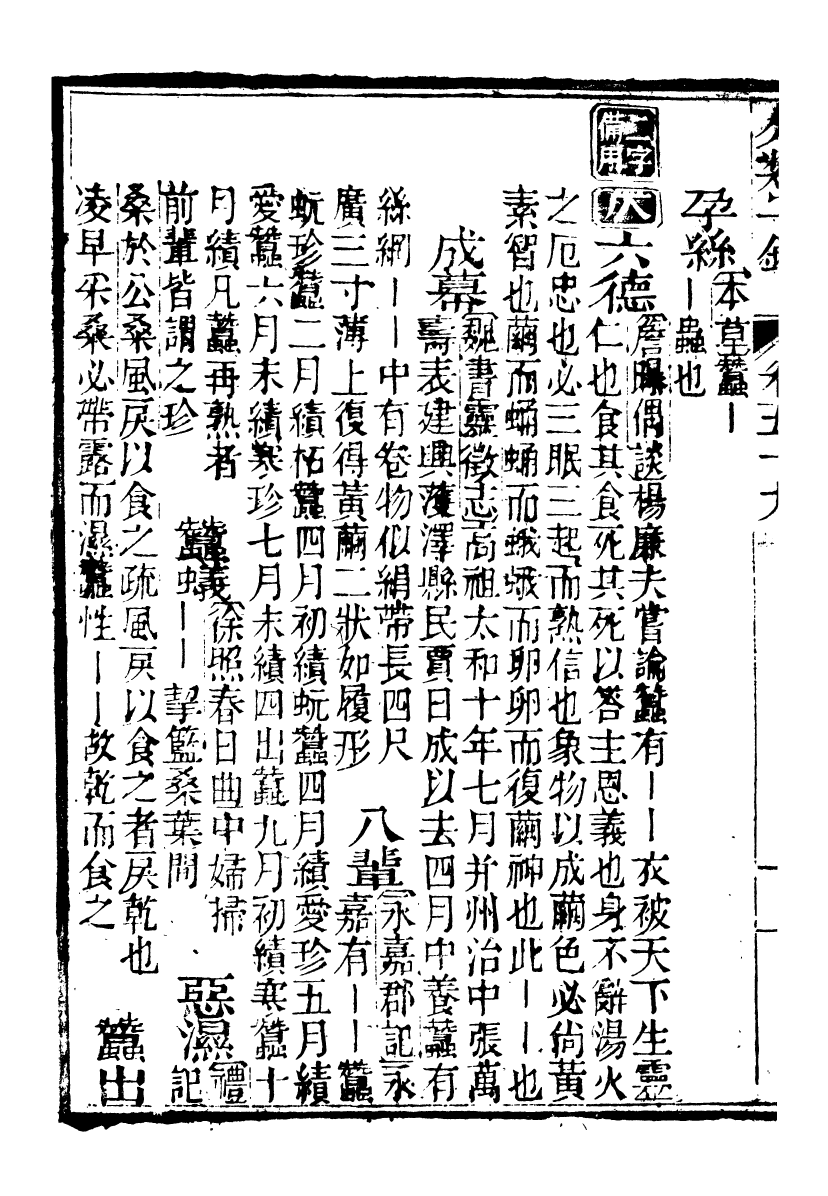 分類字錦 卷五十九
孕絲 本草蠶｜
｜蟲也
二字備用 仄 六德 詹曝偶談楊廉夫嘗論蠶有｜｜衣被天下生靈
仁也食其食死其死以答主恩義也身不辭湯火
之厄忠也必三眠三起而熟信也象物以成繭色必尙黃
素智也繭而蛹蛹而蛾蛾而卵卵而復繭神也此｜｜也
成幕 魏書靈徵志高祖太和十年七月并州治中張萬
壽表建興濩澤縣民賈日成以去四月中養蠶有
絲網｜｜中有卷物似絹帶長四尺
廣三寸薄上復得黃繭二狀如履形
八輩 永嘉郡記永
嘉有｜｜蠶
蚖珍蠶二月績柘蠶四月初績蚖蠶四月績愛珍五月績
愛蠶六月末績寒珍七月末績四出蠶九月初績寒蠶十
月績凡蠶再熟者
前輩皆謂之珍
蠶蟻 徐照春日曲中婦掃
｜｜挈籃桑葉間
惡濕 禮
記
桑於公桑風戾以食之疏風戾以食之者戾乾也
凌早采桑必帶露而濕蠶性｜｜故乾而食之
蠶出